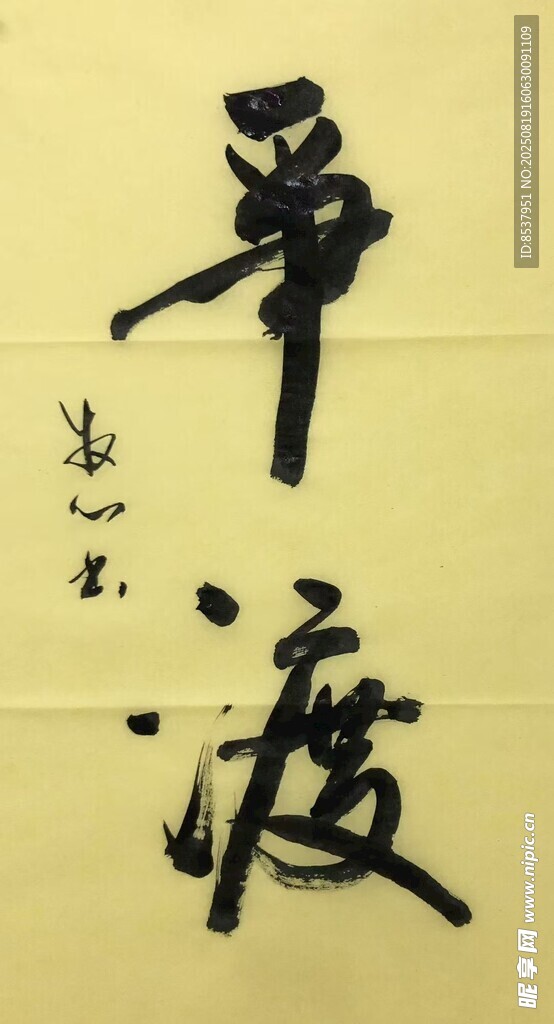 一苇渡
心书
ID:8537951 NO:20250819160630091109
昵享网 www.nipic.cn